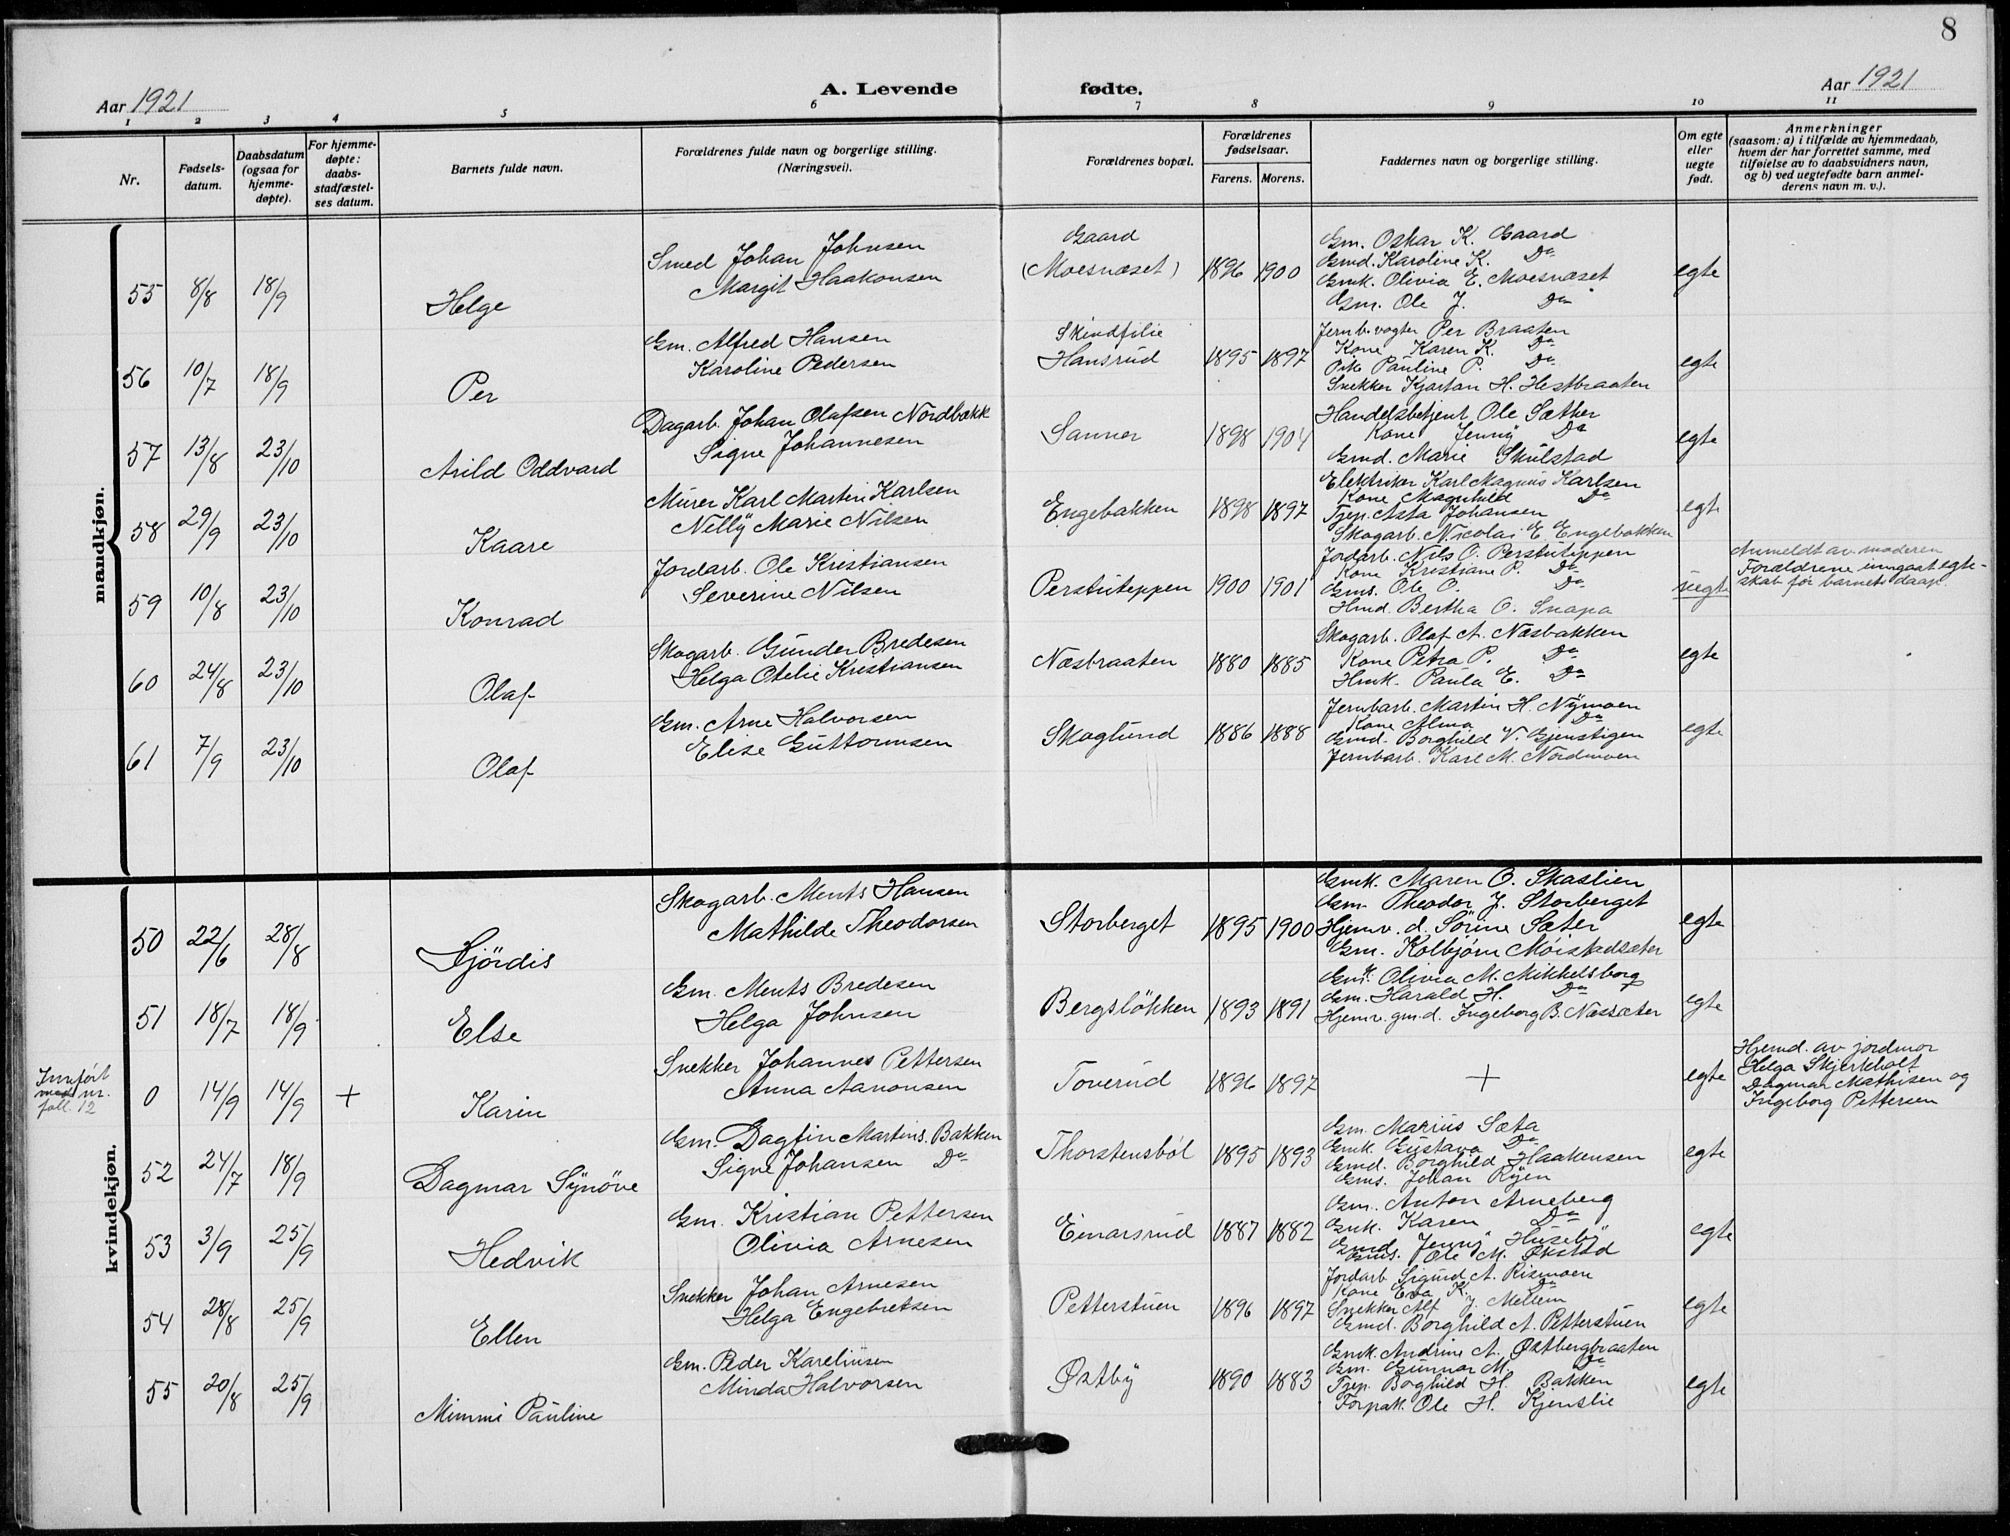 8
Aar 1921
A. Levende fødte.
Aar 1921
1 2 3 4 5 6 7 8 9 10 11
Nr.
Fødsels-
datum.
Daabsdatum
(ogsaa for
hjemme-
døpte).
For hjemme-
døpte:
daabs-
stadfæstel-
ses datum.
Barnets fulde navn.
Forældrenes fulde navn og borgerlige stilling.
(Næringsvei).
Forældrenes bopæl.
Forældrenes
fødselsaar.
Farens. Morens.
Faddernes navn og borgerlige stilling.
Om egte
eller
uegte
født.
Anmerkninger
(saasom: a) i tilfælde av hjemmedaab,
hvem der har forrettet samme, med
tilføielse av to daabsvidners navn,
og b) ved uegtefødte barn anmel-
derens navn m. v.).
mandkjøn.
55 8/8 18/9 Helge
Smed Johan Johnsen
Margit Haakonsen
Gaard
(Moesnæset)
1896 1900
Gm. Oskar K. Gaard
Gmd. Karoline K. Do
Gmk. Olivia E. Moesnæset
Gm. Ole J. Do
egte
56 10/7 18/9 Per
Gm. Alfred Hansen
Karoline Pedersen
Skindfilie
Hansrud
1895 1897
Jernb.vogter Per Braaten
Kone Karen K. Do
Pike Pauline P. Do
Snekker Kjartan H. Hestbraaten
egte
57 13/8 23/10 Arild Oddvard
Dagarb. Johan Olafsen Nordbækk
Signe Johannesen
Sanner
1898 1904
Handelsbetjent Ole Sæther
Kone Jenny Do
Gmd. Marie Skulstad
egte
58 29/9 23/10 Kaare
Murer Karl Martin Karlsen
Nelly Marie Nilsen
Engebakken
1898 1897
Elektriker Karl Magnus Karlsen
Kone Magnhild Do
Tjep. Asta Johansen
Skogarb. Nicolai E. Engebakken
egte
59 10/8 23/10 Konrad
Jordarb. Ole Kristiansen
Severine Nilsen
Perstuteppen
1900 1901
Jordarb. Nils O. Perstuteppen
Kone Kristiane P. Do
Gms. Ole O. Do
Hmd. Bertha O. Snapa
uegte
Anmeldt av moderen
Forældrene inngaat egte-
skab før barnets daap.
60 24/8 23/10 Olaf
Skogarb. Gunder Bredesen
Helga Otelie Kristiansen
Næsbraaten
1880 1885
Skogarb. Olaf A. Næsbakken
Kone Petra P. Do
Hmk. Paula E. Do
egte
61 7/9 23/10 Olaf
Gm. Arne Halvorsen
Elise Guttormsen
Skoglund
1886 1888
Jernbarb. Martin H. Nymoen
Kone Alma Do
Gmd. Borghild V. Gjenstigen
Jernbarb. Karl M. Nordmoen
egte
kvindekjøn.
50 22/6 28/8 Hjördis
Skogarb. Ments Hansen
Mathilde Theodorsen
Storberget
1895 1900
Gmk. Maren O. Skaslien
Gm. Theodor J. Storberget
Hjemv. d. Sörine Sæter
Gm. Kolbjörn Möistadsæter
egte
51 18/7 18/9 Else
Gm. Ments Bredesen
Helga Johnsen
Bergslökken
1893 1891
Gmk. Olivia M. Mikkelsborg
Gm. Harald H. Do
Hjemv. gm.d. Ingeborg B. Næssæter
egte
Innført
med nr.
fall. 12
0 14/9 14/9 + Karin
Snekker Johannes Pettersen
Anna Aanonsen
Toverud
1896 1897
+
egte
Hjemd. av jordmor
Helga Skjerkholt
Dagmar Mathisen og
Ingeborg Pettersen
52 24/7 18/9 Dagmar Synöve
Gm. Dagfin Martins. Bakken
Signe Johansen Do
Thorstensböl
1895 1893
Gm. Marius Sæta
Gmk. Gustava Do
Gmd. Borghild Haakensen
Gms. Johan Ryen
egte
53 3/9 25/9 Hedvik
Gm. Kristian Pettersen
Olivia Arnesen
Einarsrud
1887 1882
Gm. Anton Arneberg
Gmk. Karen Do
Gmd. Jenny Huseby
Gms. Ole M. Økstad
egte
54 28/8 25/9 Ellen
Snekker Johan Arnesen
Helga Engebretsen
Petterstuen
1896 1897
Jordarb. Sigurd A. Rismoen
Kone Eva K. Do
Snekker Alf J. Mellem
Gmd. Borghild A. Petterstuen
egte
55 20/8 25/9 Mimmi Pauline
Gm. Peder Kareliusen
Minda Halvorsen
Østby
1890 1883
Gmk. Andrine A. Østbergbraaten
Gm. Gunnar M. Do
Tjep. Borghild H. Bakken
Forpakt. Ole H. Kjenslie
egte